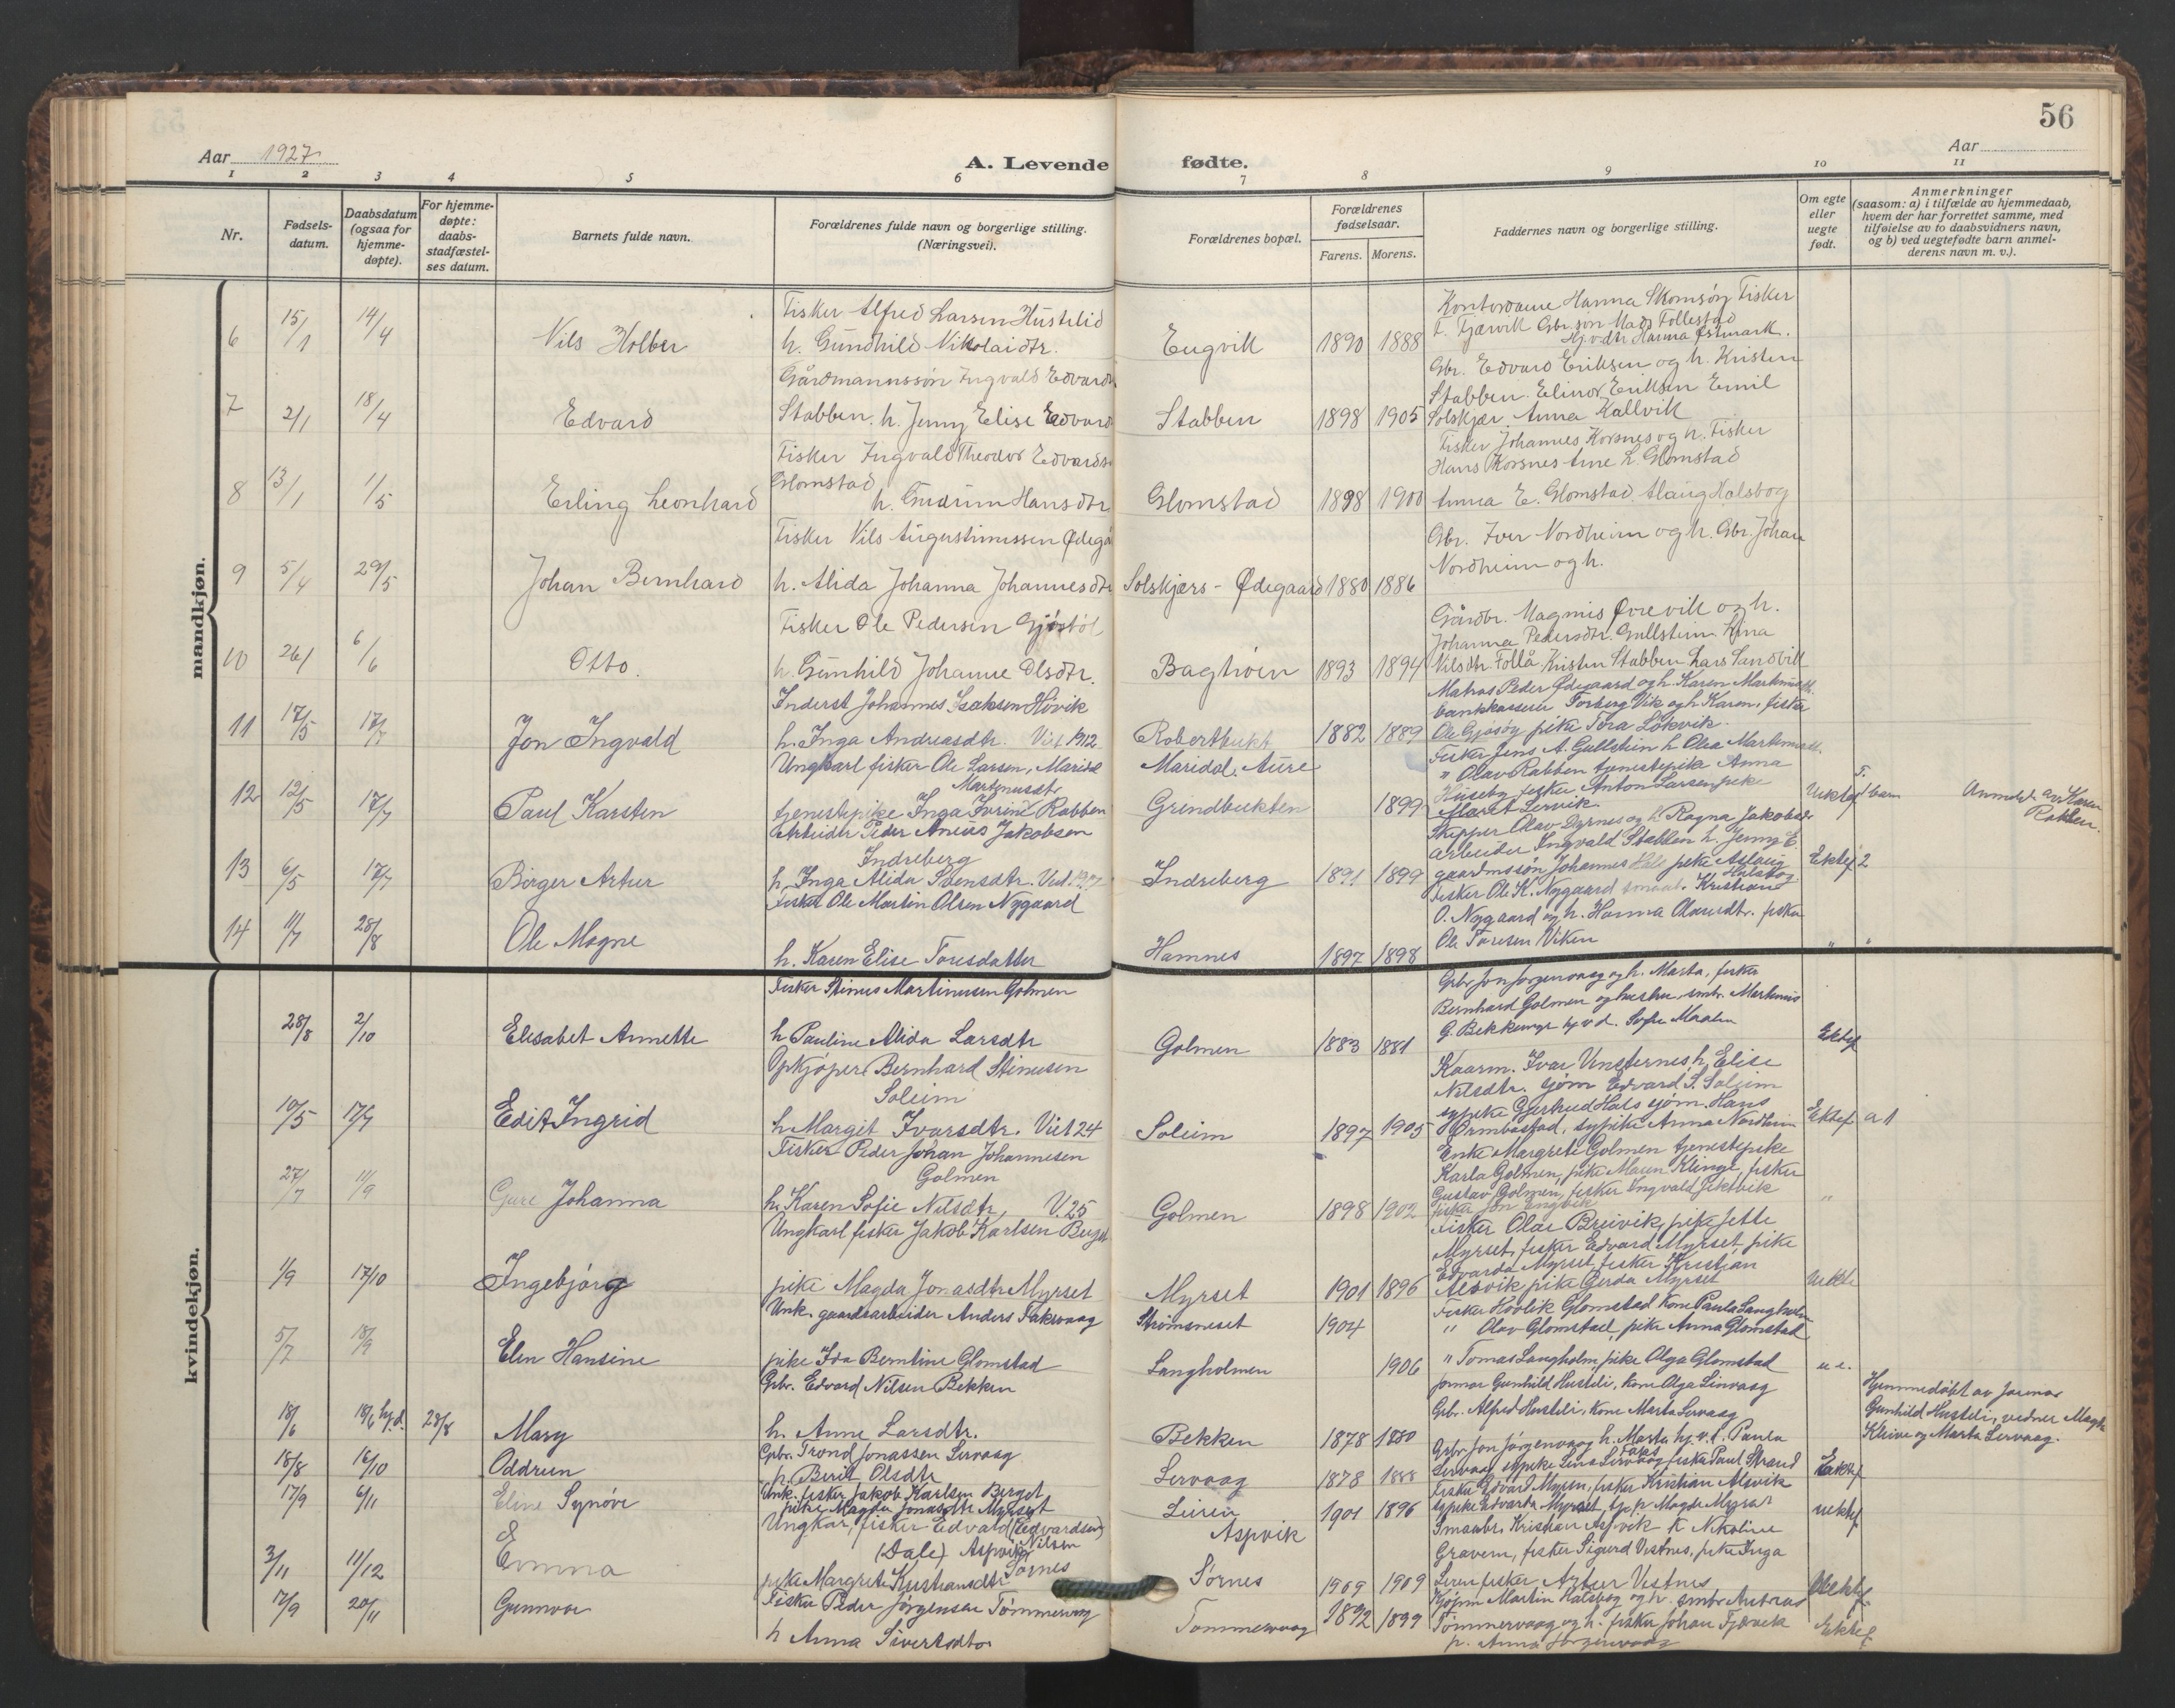 56
Aar 1927
A. Levende fødte.
Aar
1 2 3 4 5 6 7 8 9 10 11
Nr.
Fødsels-
datum.
Daabsdatum
(ogsaa for
hjemme-
døpte).
For hjemme-
døpte:
daabs-
stadfæstel-
ses datum.
Barnets fulde navn.
Forældrenes fulde navn og borgerlige stilling.
(Næringsvei).
Forældrenes bopæl.
Forældrenes
fødselsaar.
Farens. Morens.
Faddernes navn og borgerlige stilling.
Om egte
eller
uegte
født.
Anmerkninger
(saasom: a) i tilfælde av hjemmedaab,
hvem der har forrettet samme, med
tilføielse av to daabsvidners navn,
og b) ved uegtefødte barn anmel-
derens navn m. v.).
mandkjøn.
6 15/1 14/4 Nils Holber
Fisker Alfred Larsen Hustelid
h. Gunhild Nikolaidtr.
Engvik 1890 1888
Hanna Skomsøy Fisker
Hanna Østmark.
7 2/1 18/4 Edvard
Gårdmannssøn Ingvald Edvards
Stabben. h. Jenny Elise Edvard
Stabben 1898 1905
Gbr. Edvard Eriksen og h. Kristen
Stabben. Elinor Eriksen Emil
Solskjær Anna Kallvik
8 13/1 1/5 Erling Leonhard
Fisker Ingvald Theodor Edvards
Glomstad
h. Gudrun Hansdtr
Glomstad 1898 1900
Fisker Johannes Korsnes og h. Fisker
Hans Korsnes Ane L. Glomstad
Anna E. Glomstad Alaug Halsbog
9 5/4 29/5 Johan Bernhard
Fisker Nils Augustinussen Ødegå
h. Alida Johanna Johannesdtr
Solskjærs-Ødegaard 1880 1886
Gbr. Iver Nordheim og h. Gbr. Johan
Nordheim og h.
10 26/1 6/6 Otto.
Fisker Ole Pedersen
h. Gunhild Johanne Olsdtr.
Bagtrøen 1893 1894
Gårdbr. Magnus Ørevik og h.
Johanna Pedersdtr. Gullstein. Lina
Nilsdtr. Follå. Kristen Stabben Lars Sandvik
11 17/5 17/7 Jon Ingvald
Inderst Johannes Isaksen Høvik
h. Inga Andreasdtr. Viet 1912
Robertbukt 1882 1889
Matros Peder Ødegaard og h. Karen
bankkasserer Torberg Vik og h. Karen, fisker
Ole Gjøsøy pike Tora Løkvik.
12 12/5 17/7 Paul Karsten
Ungkarl fisker Ole Larsen, Maridal
Martinusdtr
tjenestepike Inga Irene Rabben
Maridal, Aure
Grindbukten 1899
Fisker Jens A. Gullstein h. Olea
" Olav Rabben tjenestepike Anna
Huseby fisker Anton Larsen pike
Maret Lervik
Uektef barn
Anmeldt av Karen
Rabben.
13 6/5 17/7 Birger Artur
Arbeider Peder Aneus Jakobsen
Indreberg
h. Inga Alida Svensdtr.
Indreberg 1891 1899
Skipper Olav Dyrnes og h. Ragna
Arbeider Ingvald Stabben h. Jenny E.
gaardmssøn Johannes Hals pike Aslaug
Halsbog
Ektef 2
14 11/7 28/8 Ole Magne
Fisker Ole Martin Olsen Nygaard
h. Karen Elise Toresdatter
Hamnes 1897 1898
Fisker Ole K. Nygaard Kristian
O. Nygaard og h. Hanna Olausdtr. fisker
Ole Toresen Viken
" "
kvindekjøn.
28/8 2/10 Elisabet Annette
Fisker Stinus Martinusen Golmen
h Pauline Alida Larsdtr
Golmen 1883 1881
Gbr Jon Jørgenvaag og h. Marta, fisker
Bernhard Golmen og hustru, smbr. Martinus
G. Bekkemyr hj.v.d. Sofie Maalen
Ektef
10/5 17/7 Edit Ingrid
Opkjøper Bernhard Stinusen
Soleim
h. Margit Ivarsdtr. Viet 24
Soleim 1897 1905
Kaarm. Ivar h. Elise
Nilsdtr. gjøm Edvard S. Soleim
sypike Gjertrud Hals sjøm. Hans
Ormbostad, sypike Anna Nordheim
Ektef a 1
27/7 11/9 Gure Johanna
Fisker Peder Johan Johannesen
Golmen
h. Karen Sofie Nilsdtr, V. 25
Golmen 1898 1902
Enke Margrete Golmen tjenestepike
Karla Golmen, pike Maren Klinge, fisker
Gustav Golmen, fisker Ingvald Jektvik
fisker Jon Engvik
"
1/9 17/10 Ingebjørg
Ungkarl fisker Jakob Karlsen Berget
pike Magda Jonasdtr Myrset
Myrset 1901 1896
Fisker Olav Breivik, pike Jette
Myrset, fisker Edvard Myrset, pike
Edvarda Myrset, fisker Kristian
Alsvik pike Gerda Myrset
5/7 18/9 Elen Hansine
Unk. gaardsarbeider Anders Fakervaag
pike Ida Berntine Glomstad
Strømsneset 1904
Langholmen 1906
Fisker Hovlik Glomstad Kone Paula Langholm
" Olav Glomstad, pike Anna Glomstad
" Tomas Langholm, pike Olga Glomstad
u. e.
18/6 18/6 hj.d. 28/8 Mary
Gbr. Edvard Nilsen Bekken
h. Anne Larsdtr.
Bekken 1878 1880
Jormor Gunhild Husteli, kone Olga Linvaag
Gbr. Alfred Husteli, Kone Marta Lervaag
Hjemmedøbt av Jormor
Gunhild Husteli, vidner Magda
Kleive og Marta Lervaag.
18/8 16/10 Oddrun
Gbr. Trond Jonassen Lervaag
h. Berit Olsdtr
Lervaag 1878 1888
Gbr Jon Jørgenvaag h. Marta hj.v.d. Paula
Lervaag sypike Lena Lervaag fisker Paul Strand
Ektef
17/9 6/11 Eline Synøve
Unk. fisker Jakob Karlsen Berget
pike Magda Jonasdtr Myrset
Leiren 1901 1896
Fisker Edvard Myren, fisker Kristian Alsvik
sypike Edvarda Myrset, tj. p. Magda Myrset
uektef
3/11 11/12 Emma
Ungkar, fisker Edvard (Edvardsen)
Nilsen
(Dale) Aspvik
Sørnes
pike Margrete Kristiansdtr
Aspvik
Sørnes 1909 1909
Smaabr. Kristian Aspvik K Nikoline
Gravem, fisker Sigurd Vestnes, pike Inga
Leren fisker Artur Vestnes
Uektef
17/9 20/11 Gunnvor
Fisker Peder Jørgensen Tømmervaag
h Anna Sivertsdtr
Tømmervaag 1892 1899
Martin Halsbog og h. smbr
Tømmervaag og h. fisker Johan Fjærvik
p. Anna Jørgenvaag
Ektef